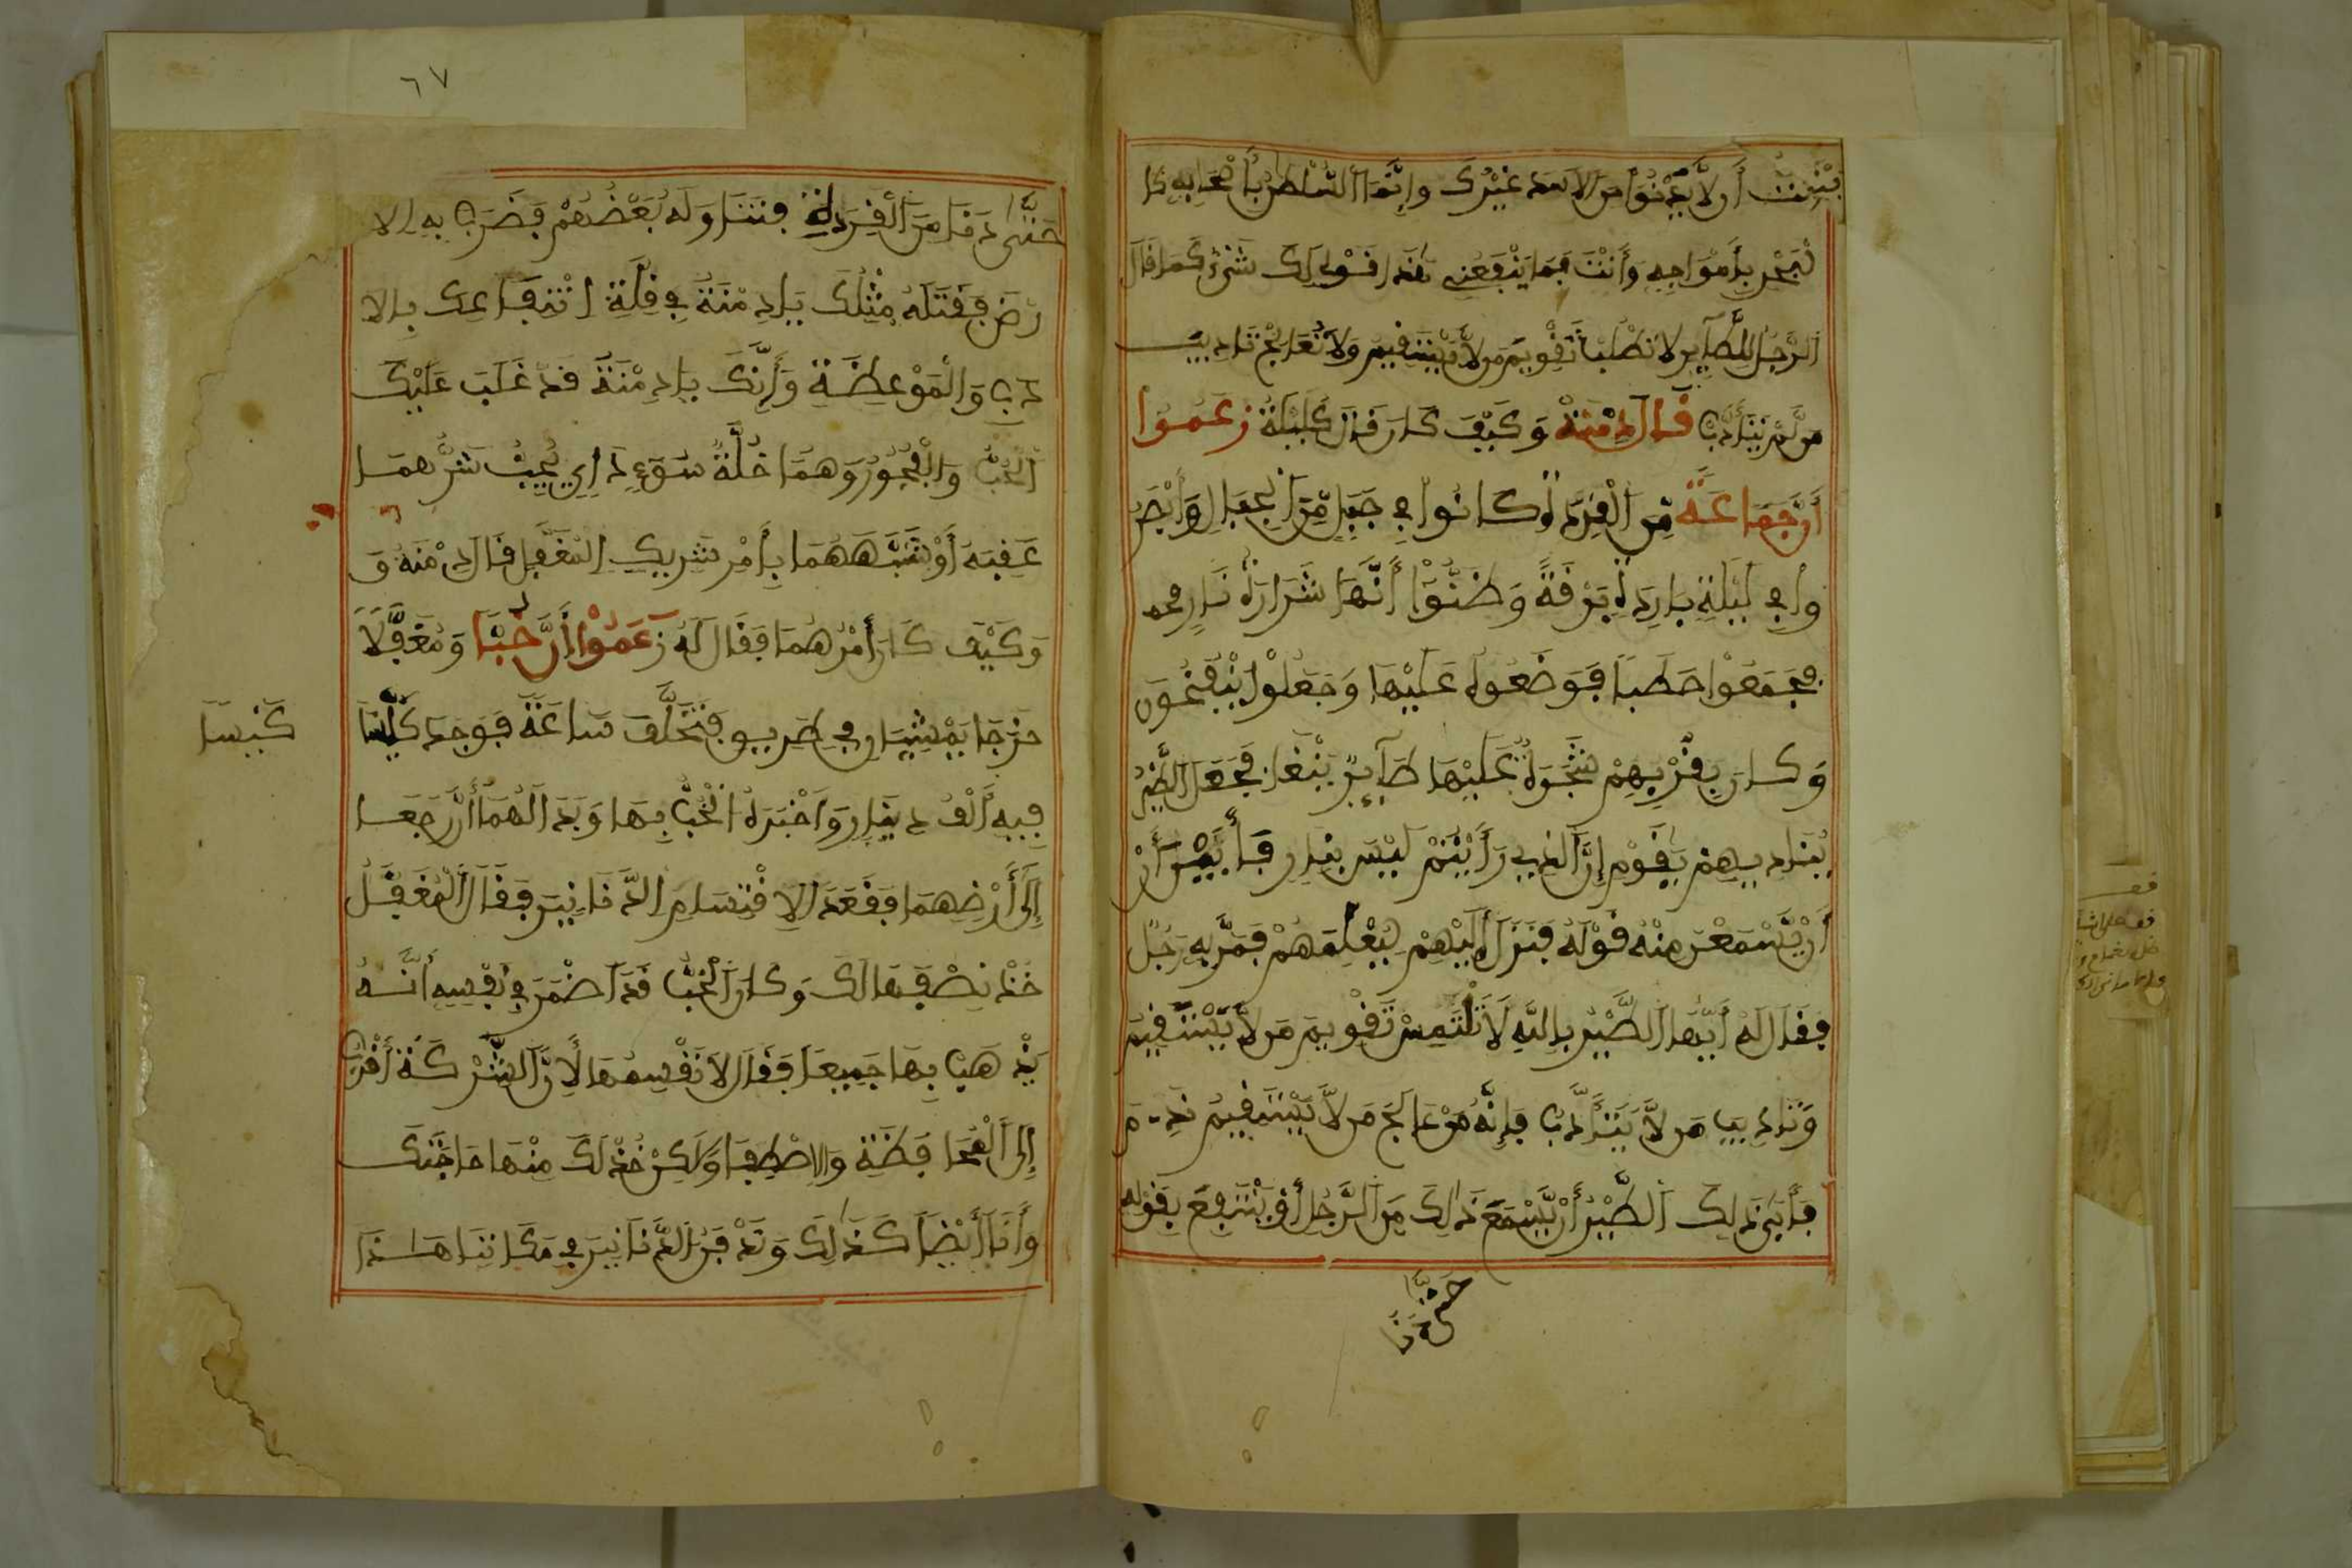 أن لا يدنوا من الأسد غيرك وإنما السلطن بأصحابه كا
لبحر بأمواجه وأنت فما ينفعني هذا قولي لك شيء كما قال
الرجل للطاير لا تطلب تقويم من لا يستقيم ولا تعالج تاديب
من لم يتأدب قال دمنة وكيف كان قال كليلة زعموا
أن جماعة من القردة كانوا في جبل من الجبال وأبصر
وا في ليلة باردة برقة وظنوا أنها شرارة نار
فجمعوا حطبا فوضعوه عليها وجعلوا ينفخون
وكان بقربهم شجرة عليها طاير فجعل الطير
يناديهم يقوم إن الذي رأيتم ليس بنار فأبين أن
أن يسمعن منه قوله فنزل إليهم ليعلمهم فمر به رجل
فقال له أيها الطير بالله لا تلتمس تقويم من لا يستقيم
وتاديب من لا يتأدب فإنه من عالج من لا يستقيم ندم
فأبى ذلك الطير أن يسمع ذلك من الرجل بقوله
حتى دنا
٦٧
حتى دنا من القردة فتناوله بعضهم فضرب به الا
رض فقتله مثلك يادمنة في قلة انتفاعك بالا
دب والموعظة وأنك يادمنة قد غلب عليك
الخب والفجور وهما خلة سوء
عقبه أو شبههما بأمر شريك المغفل قال دمنة و
وكيف كان أمرهما فقال له زعموا أن خبا ومغفلا
خرجا يمشيان في طريق فتخلف ساعة فوجد كيسا
كيسا
فيه ألف دينار وأخبره الخب بها وبدا لهما أن رجعا
إلى أرضهما فقعدا لاقتسام الدنانير فقال المغفل
خذ نصفها لك وكان الخب قد أضمر في نفسه أنه
يذهب بها جميعا فقال لا نقسمها لأن الشركة أقرب
إلى المحافظة والاصطفا ولكن خذ لك منها حاجتك
وأنا أيضا كذلك وندفن الدنانير في مكاننا هذا